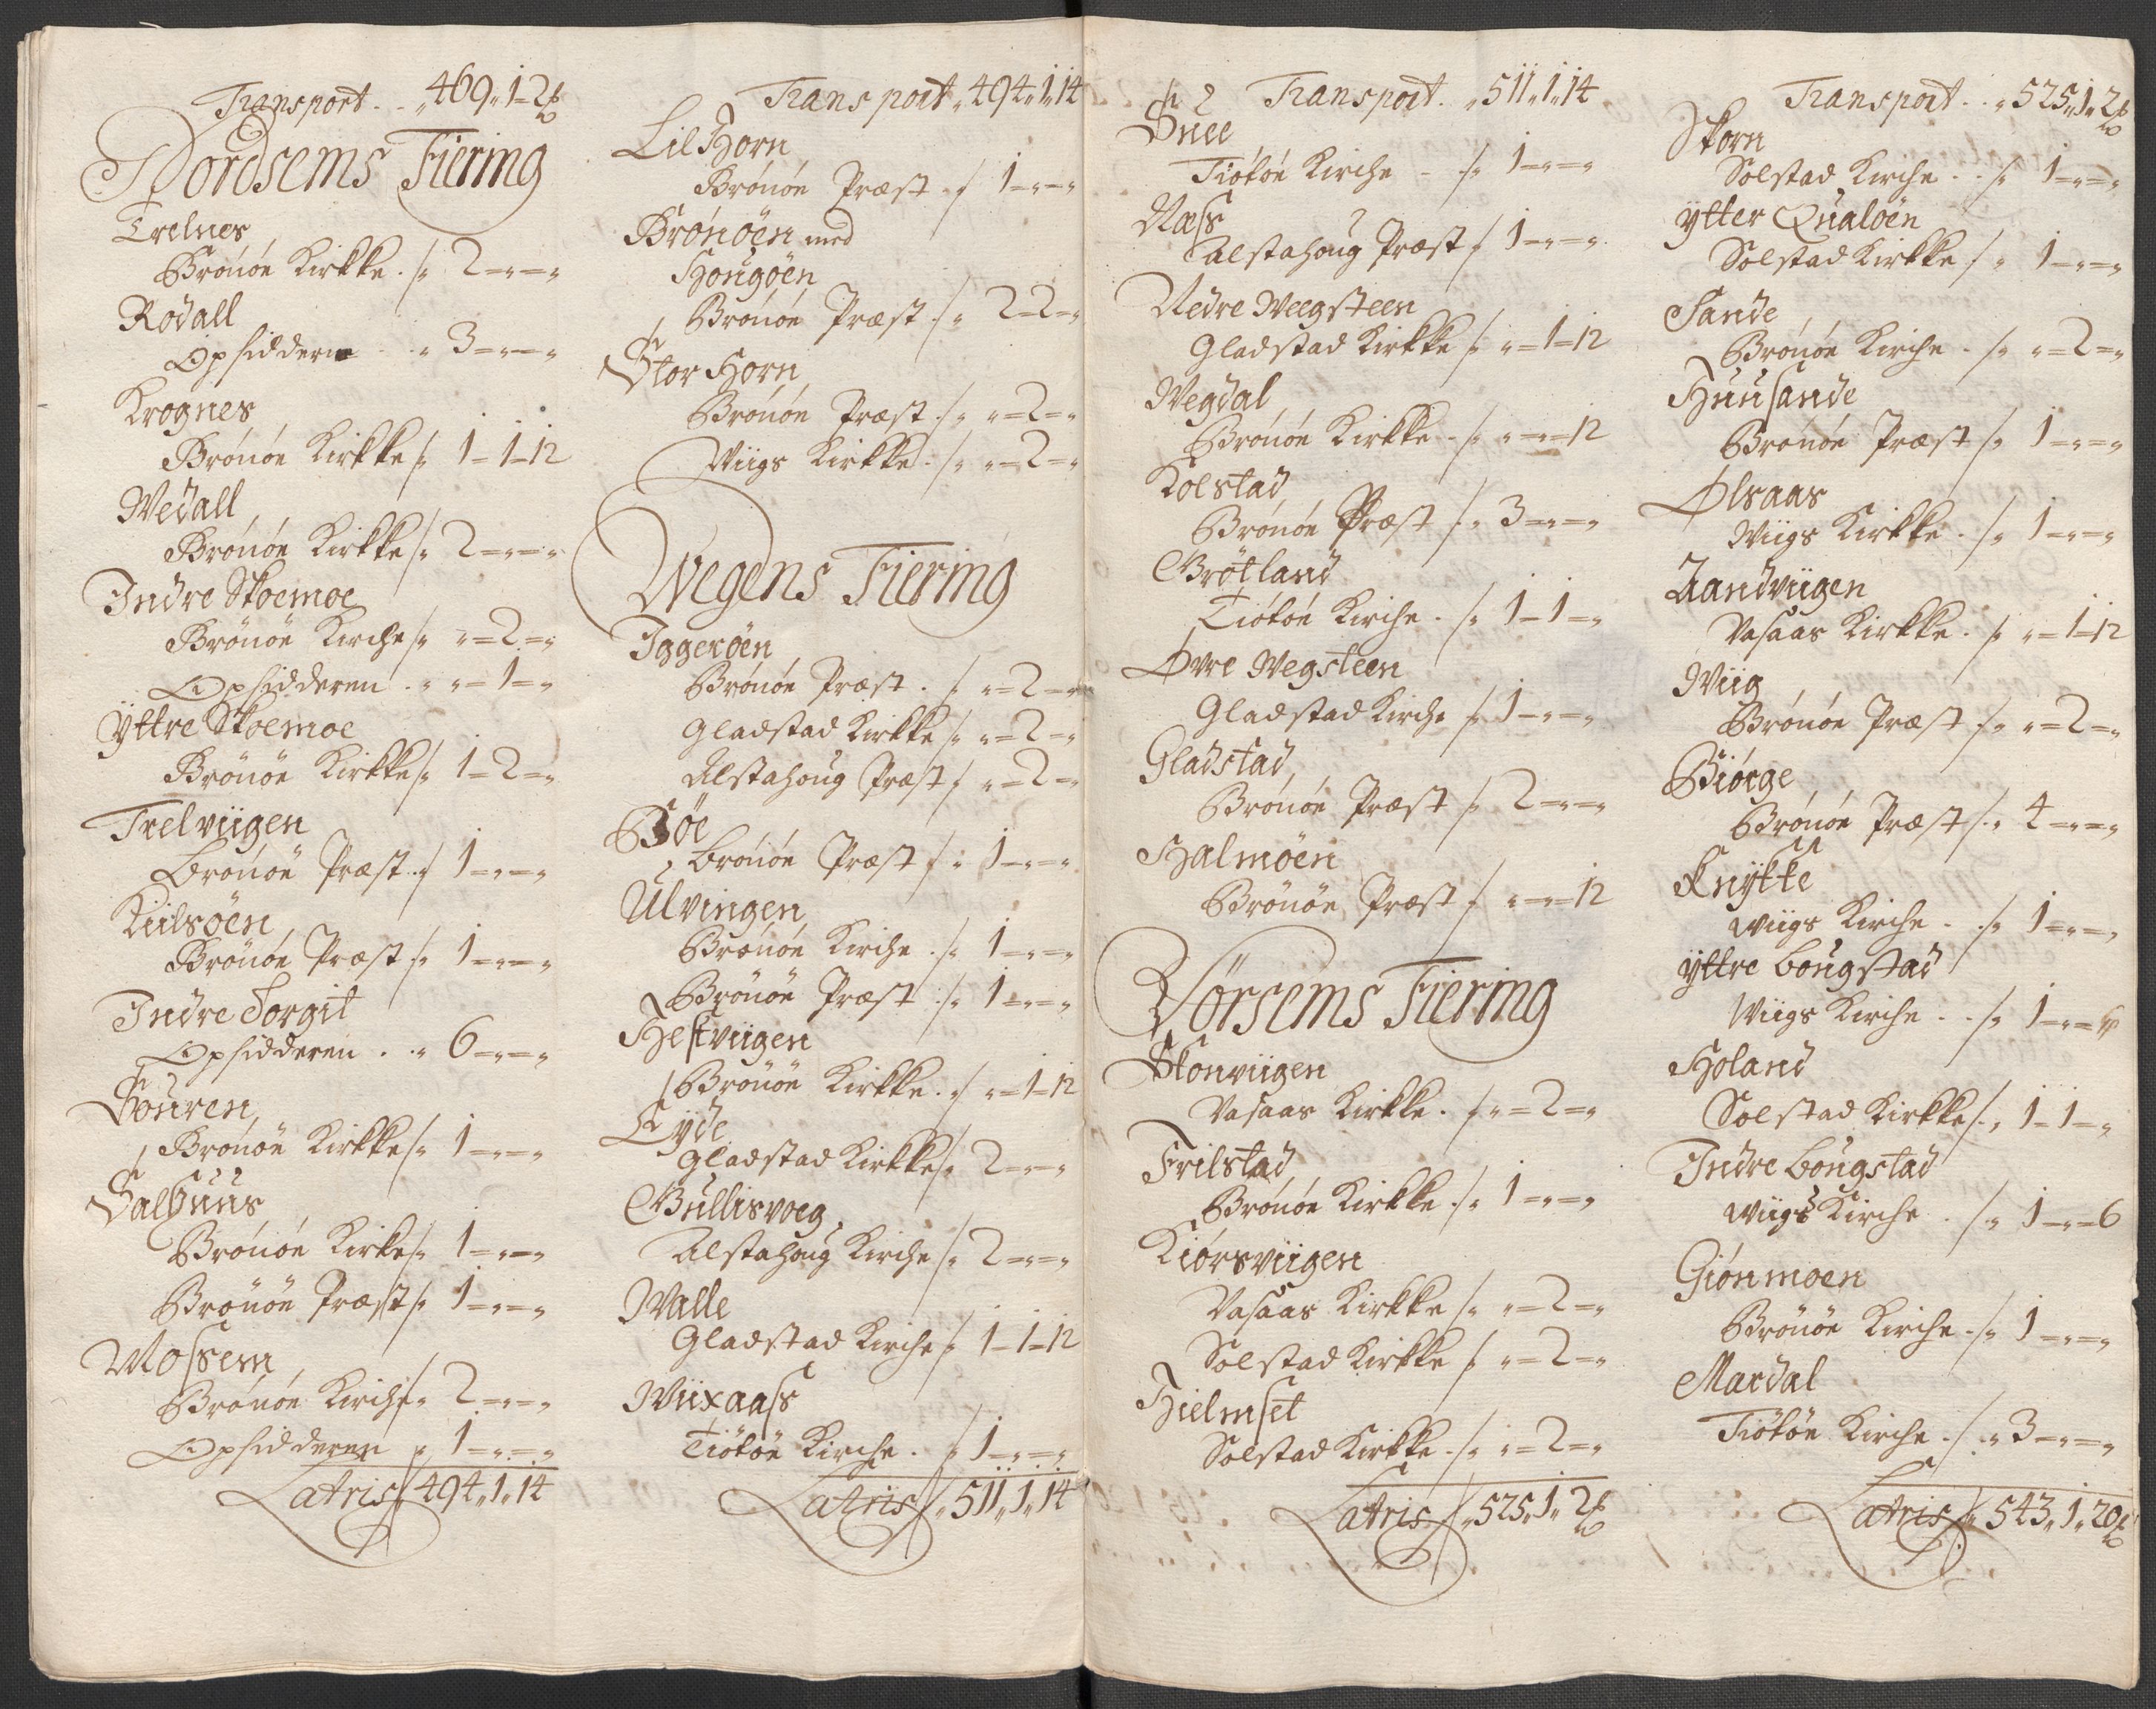 Transport . . „ 469„1=2
Tordsems Fiering
Trelnes
Brönöe Kirkke . /. 2 =„=„
Rødall
Opsidderne . . „ 3 =„=„
Krognes
Brönöe Kirkke /. 1=1=12
Wedall
Brönöe Kirkke /. 2 =„=„
Indre Skoemoe
Brönöe Kirche /. „=2=„
Opsidderen . „ „=1=„
Ÿttre Skoemoe
Brönöe Kirkke /. 1=2=„
Trelviigen
Brönöe Præst . /. 1 =„=„
Kiilsöen
Brönöe Præst /. 1 =„=„
Indre Torgit
Opsidderen . . „ 6 =„=„
Souren
Brönöe Kirkke /. 1 =„=„
Salhuus
Brönöe Kirke /. 1 =„=„
Brönöe Præst /. 1 =„=„
Mosem
Brönöe Kirche /. 2 =„=„
Opsidderen „ 1 =„=„
Latris /. 494„1„14
Transport „ 494„1„14
Lil Horn
Brönöe Præst . /. 1 =„=„
Brönöen med
Hougöen
Brönöe Præst . /. 2=2=„
Stor Horn
Brönöe Præst . /. „=2=„
Wiigs Kirkke . /. „=2=„
Wegens Fiering
Iggeröen
Brönöe Præst . /. „=2=„
Gladstad Kirkke /. „=2=„
Alstahoug Præst /. „=2=„
Böe
Brönöe Præst /. „ 1 =„=„
Ulvingen
Brönöe Kirche . /. 1 =„=„
Brönöe Præst . /. 1 =„=„
Hestviigen
Brönöe Kirkke . /. „=1=12
Eyde
Gladstad Kirkke /. 2 =„=„
Gullisvoeg
Alstahoug Kirche /. 2 =„=„
Walle
Gladstad Kirche /. 1=1=12
Wiixaass
Tiötöe Kirche . /. 1 =„=„
Latris /. „ 511„1„14
Transport . „ 511„1„14
Snee
Tiötöe Kirche - /. 1 =„=„
Næss
Alstahoug Præst /. 1 =„=„
Nedre Weegsteen
Gladstad Kirkke /. „=1=12
Wegdal
Brönöe Kirkke . /. „=„=12
Kolstad
Brönöe Præst /. „ 3 =„=„
Grötland
Tiötöe Kirche . /. 1=1=„
Øvre Wegsteen
Gladstad Kirche /. 1 =„=„
Gladstad
Brönöe Præst /. 2 =„=„
Halmöen
Brönöe Præst /. „=„=12
Hörsems Fiering
Stonviigen
Vasaas Kirkke . /. „=2=„
Frilstad
Brönöe Kirkke . /. 1 =„=„
Kiörsviigen
Vasaas Kirkke /. „=2=„
Solstad Kirkke /. „=2=„
Hielmset
Solstad Kirkke . /. „=2=„
Latris /. „ 525„1„2
Transport . . „ 525„1„2
Skorn
Solstad Kirche . . /. 1 =„=„
ÿtter Qualöen
Solstad Kirkke /. „ 1 =„=„
Sande
Brönöe Kirche . /. „=2=„
Huusande
Brönöe Præst /. 1 =„=„
Ølsaas
Wiigs Kirkke . /. 1 =„=„
Aandviigen
Vasaas Kirkke . /. „=1=12
Wiig
Brönöe Præst /. „=2=„
Biörge
Brönöe Præst /. „ 4 =„=„
Knÿtte
Wiigs Kirche . . /. 1 =„=„
ÿttre Bougstad
Wiigs Kirche . . /. 1 =„=„
Holand
Solstad Kirkke /. „ 1=1=„
Indre Bougstad
Wiigs Kirche . /. „ 1=„=6
Giönmoen
Brönöe Kirche . /. 1 =„=„
Mardal
Tiötöe Kirche . /. „ 3 =„=„
Latris /. „ 543„1„20